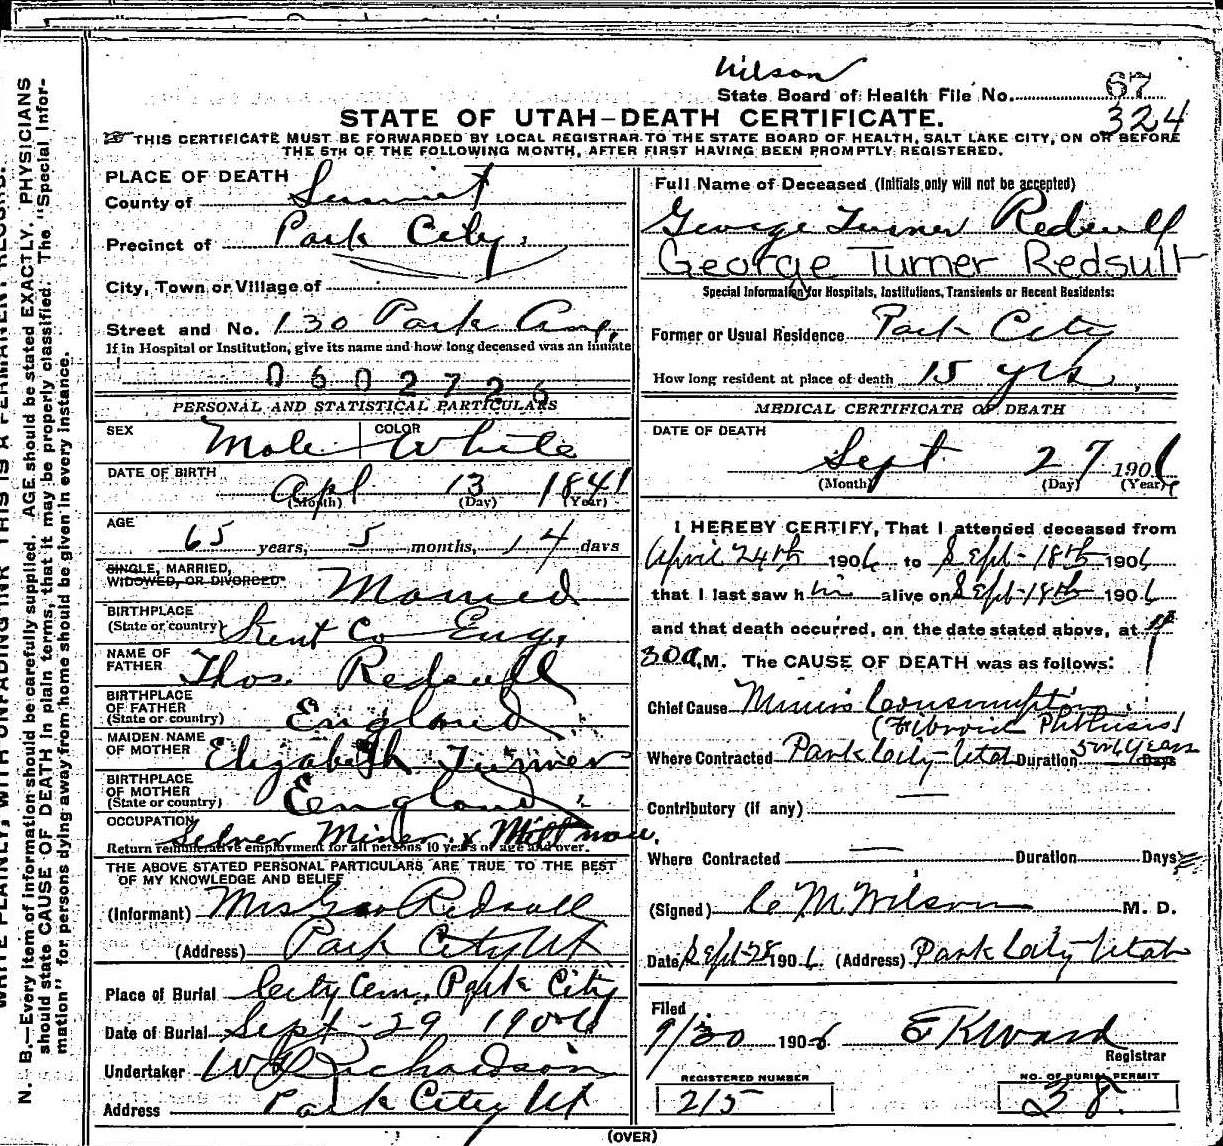 Wilson
State Board of Health File No. 67
324
STATE OF UTAH—DEATH CERTIFICATE.
THIS CERTIFICATE MUST BE FORWARDED BY LOCAL REGISTRAR TO THE STATE BOARD OF HEALTH, SALT LAKE CITY, ON OR BEFORE
THE 5TH OF THE FOLLOWING MONTH, AFTER FIRST HAVING BEEN PROMPTLY REGISTERED.
PLACE OF DEATH
County of Summit
Precinct of Park City,
City, Town or Village of
Street and No. 130 Park Ave,
If in Hospital or Institution, give its name and how long deceased was an inmate
0602726
PERSONAL AND STATISTICAL PARTICULARS
SEX Male COLOR White
DATE OF BIRTH
Apl 13 1841
(Month) (Day) (Year)
AGE
65 years, 5 months, 14 days
SINGLE, MARRIED,
WIDOWED, OR DIVORCED Married
BIRTHPLACE
(State or country) Kent Co Eng.
NAME OF
FATHER Thos. Redsull
BIRTHPLACE
OF FATHER
(State or country) England
MAIDEN NAME
OF MOTHER Elizabeth Turner
BIRTHPLACE
OF MOTHER
(State or country) England
OCCUPATION
Silver Miner & Mill man.
Return remunerative employment for all persons 10 years of age and over.
THE ABOVE STATED PERSONAL PARTICULARS ARE TRUE TO THE BEST
OF MY KNOWLEDGE AND BELIEF
(Informant) Mrs Geo Redsull
(Address) Park City Ut
Place of Burial City Cem, Park City
Date of Burial Sept - 29 1906
Undertaker W Richardson
Address Park City Ut
Full Name of Deceased (Initials only will not be accepted)
George Turner Redsull
George Turner Redsult
Special Information for Hospitals, Institutions, Transients or Recent Residents:
Former or Usual Residence Park City
How long resident at place of death 15 yrs,
MEDICAL CERTIFICATE OF DEATH
DATE OF DEATH
Sept 27 1906
(Month) (Day) (Year)
I HEREBY CERTIFY, That I attended deceased from
April 24th 1906 to Sept-18th 1906
that I last saw him alive on Sept-18th 1906
and that death occurred, on the date stated above, at 11
30 a.M. The CAUSE OF DEATH was as follows:
Chief Cause Miners Consumption
(Fibroid Phthisis)
Where Contracted Park City-Utah Duration Years Days
Contributory (if any)
Where Contracted Duration Days
(Signed) M Wilson M. D.
Date Sept-28 1906. (Address) Park City-Utah
Filed
9/30 1906 E K Ward
Registrar
REGISTERED NUMBER
215
NO. OF BURIAL PERMIT
38.
(OVER)
WRITE PLAINLY, WITH UNFADING INK—THIS IS A PERMANENT RECORD.
N. B.—Every item of information should be carefully supplied. AGE should be stated EXACTLY. PHYSICIANS
should state CAUSE OF DEATH in plain terms, that it may be properly classified. The "Special Infor-
mation" for persons dying away from home should be given in every instance.